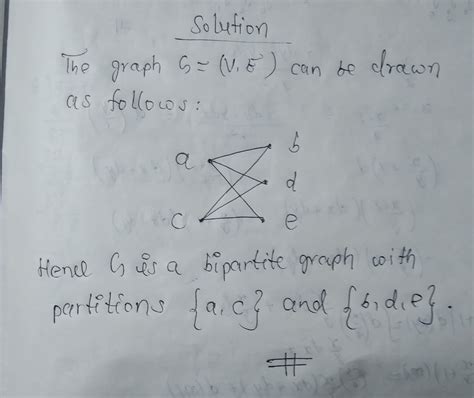 Solution
The graph G = (V, E) can be drawn
as follows:
b
a
d
c
e
Hence G is a bipartite graph with
partitions {a, c} and {b, d, e}.